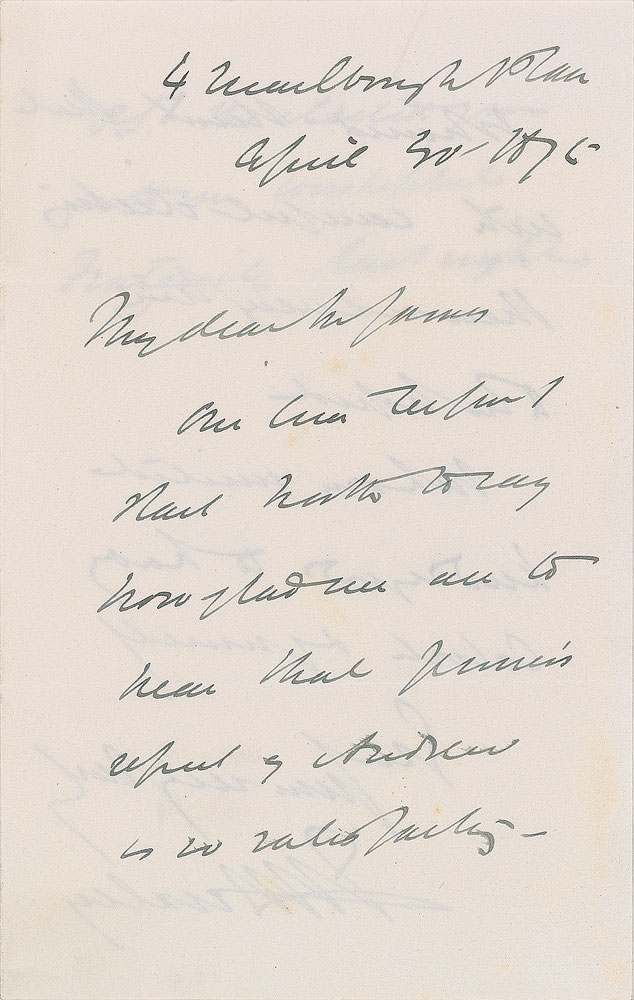 4 Marlborough Place
April 30 1875
My dear Mr James
One line before I
start North to say
how glad we are to
hear that Jenner's
report of Andrew
is so satisfactory —